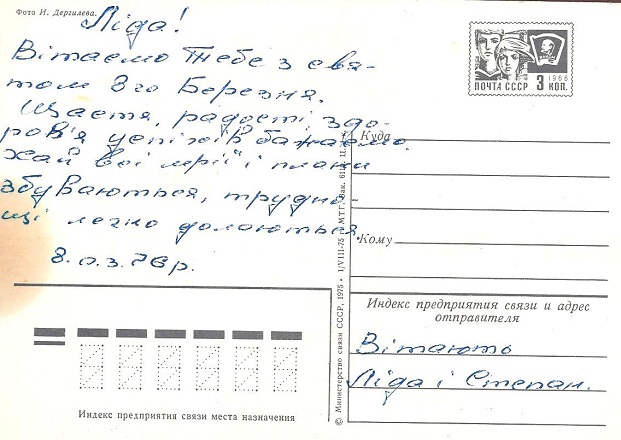 Фото И. Дергилева.
Ліда!
Вітаємо Тебе з свя-
том 8го Березня.
Щастя, радості, здо-
ров'я успіхів бажаємо.
Хай всі мрії і плани
збуваються, трудно-
щі легко долаються
8.03.76р.
1966
ПОЧТА СССР 3 КОП.
Куда
Кому
Индекс предприятия связи и адрес
отправителя
Вітають
Ліда і Степан.
Индекс предприятия связи места назначения
© Министерство связи СССР, 1975 • 1/VIII-75 г. МТГ. Зак.